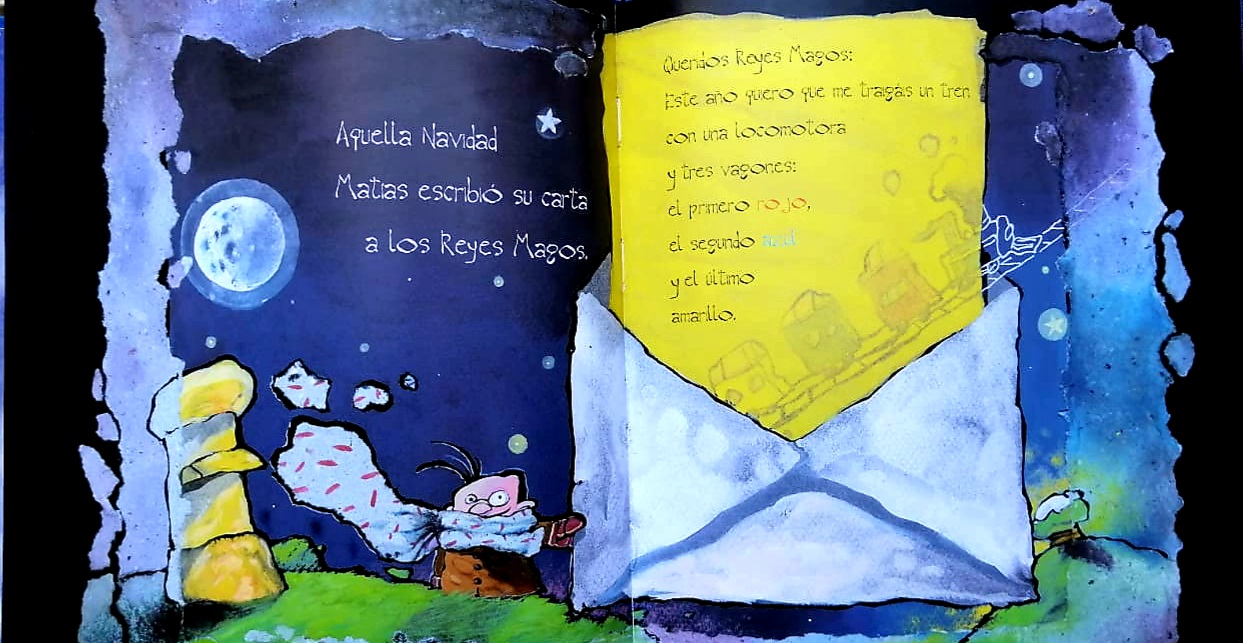 Aquella Navidad
Matías escribió su carta
a los Reyes Magos.
Queridos Reyes Magos:
Este año quiero que me traigáis un tren
con una locomotora
y tres vagones:
el primero rojo,
el segundo azul
y el último
amarillo.